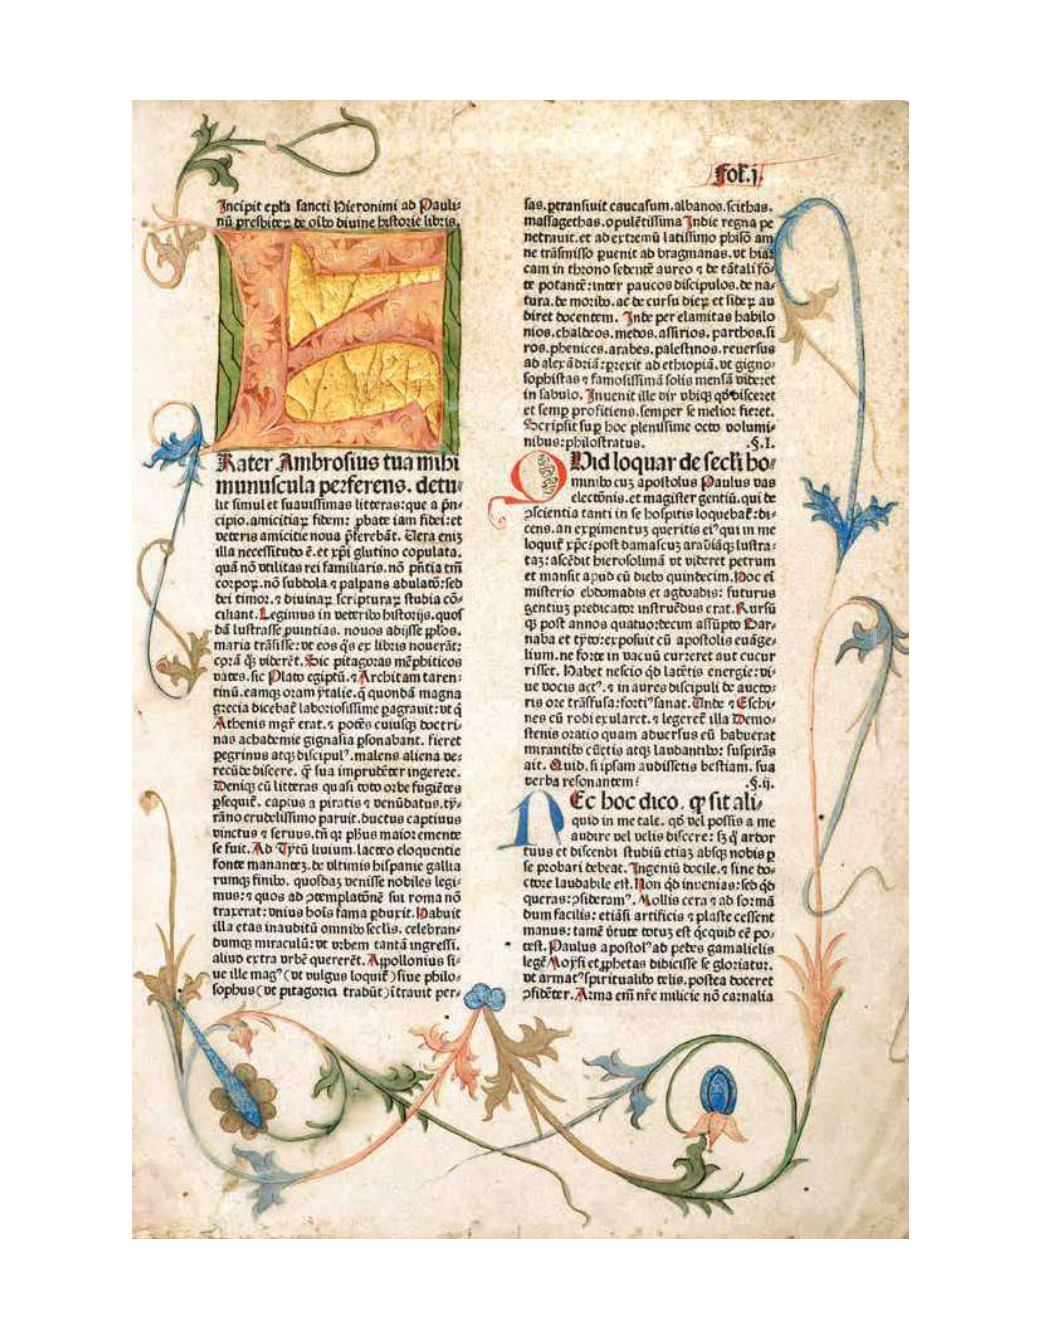 Fol̃.j.
Incipit epl̃a sancti Hieronimi ad Pauli⸗
nũ presbiteꝝ de oĩbꝰ diuine historie libris.
F
Rater Ambrosius tua mihi
munuscula perferens. detu⸗
lit simul et suauissimas litteras: que a p̃n⸗
cipio. amicitiaꝝ fidem: ꝓbate iam fidei: et
veteris amicitie noua p̃ferebãt. Uera eniꝫ
illa necessitudo ẽ. et xp̃i glutino copulata.
quã nõ vtilitas rei familiaris. nõ p̃ntia tm̃
corpoꝝ. nõ subdola ⁊ palpans adulatõ: sed
dei timor. ⁊ diuinaꝝ scripturaꝝ studia cõ⸗
ciliant. Legimus in veteribꝰ historijs. quos⸗
dã lustrasse ꝓuintias. nouos abijsse pp̃los.
maria trãsisse: vt eos q̃s ex libris nouerãt:
corã q̃ꝫ viderẽt. Sic pitagoras mẽphiticos
vates. sic Plato egiptũ. ⁊ Architam taren⸗
tinũ. eamqꝫ oram ytalie. q̃ quondã magna
grecia dicebat᷑ laboriosissime ꝑagrauit: vt q̃
Athenis mgr̃ erat. ⁊ potẽs cuiusqꝫ doctri⸗
nas achademie gignasia ꝑsonabant. fieret
ꝑegrinus atqꝫ discipulꝰ. malens aliena ve⸗
recũde discere. q̃ sua imprudẽter ingerere.
Deniqꝫ cũ litteras quasi toto orbe fugiẽtes
ꝑsequit᷑. captus a piratis ⁊ venũdatus. ty⸗
rãno crudelissimo paruit. ductus captiuus
vinctus ⁊ seruus. tñ qꝛ ph̃us maior emente
se fuit. Ad Tytũ liuium. lacteo eloquentie
fonte mananteꝫ. de vltimis hispanie gallia
rumqꝫ finibꝰ. quosdaꝫ venisse nobiles legi⸗
mus: ⁊ quos ad ꝯtemplatõnẽ sui roma nõ
traxerat: vnius hoĩs fama ꝑduxit. Habuit
illa etas inauditũ omnibꝰ seclis. celebran⸗
dumqꝫ miraculũ: vt vrbem tantã ingressi.
aliud extra vrbẽ quererẽt. Appollonius si⸗
ue ille magꝰ (vt vulgus loquit᷑) siue philo⸗
sophus (vt pitagorici tradũt) ĩtrauit per⸗
sas. ꝑtransiuit caucasum. albanos. scithas.
massagethas. opulẽtissima Indie regna pe
netrauit. et ad extremũ latissimo phisõ am
ne trãsmisso ꝑuenit ad bragmanas. vt hiar
cam in throno sedentẽ aureo ⁊ de tãtali fõ⸗
te potantẽ: inter paucos discipulos. de na⸗
tura. de moribꝰ. ac de cursu dieꝝ et sideꝝ au
diret docentem. Inde per elamitas babilo
nios. chaldeos. medos. assirios. parthos. si
ros. phenices. arabes. palestinos. reuersus
ad alexãdriã: ꝑrexit ad ethiopiã. vt gigno⸗
sophistas ⁊ famosissimã solis mensã videret
in sabulo. Inuenit ille vir vbiqꝫ qd̃ disceret
et semꝑ proficiens. semper se melior fieret.
Scripsit suꝑ hoc plenissime octo volumi⸗
nibus: philostratus. .§.I.
QUid loquar de secl̃i ho⸗
minibꝰ cuꝫ apostolus Paulus vas
electõnis. et magister gentiũ. qui de
ꝯscientia tanti in se hospitis loquebat᷑: di⸗
cens. an expimentuꝫ queritis eiꝰ qui in me
loquit᷑ xp̃c: post damascuꝫ arabiãqꝫ lustra⸗
taꝫ: ascẽdit hierosolimã vt videret petrum
et mansit apud cũ diebꝰ quindecim. Hoc em̃
misterio ebdomadis et ogdoadis: futurus
gentiuꝫ predicator instruẽdus erat. Rursũ
qꝫ post annos quatuordecim assũpto Bar⸗
naba et tyto: exposuit cũ apostolis euãge⸗
lium. ne forte in vacuũ curreret aut cucur
risset. Habet nescio qd̃ latẽtis energie: vi⸗
ue vocis actꝰ. ⁊ in aures discipuli de aucto⸗
ris ore trãsfusa: fortiꝰ sonat. Unde ⁊ Eschi⸗
nes cũ rodi exularet. ⁊ legeret᷑ illa Demo⸗
stenis oratio quam aduersus eũ habuerat
mirantibꝰ cũctis atqꝫ laudantibꝰ: suspirãs
ait. Quid. si ipsam audissetis bestiam. sua
verba resonantem? .§.ij.
NEc hoc dico. ꝙ sit ali⸗
quid in me tale. qd̃ vel possis a me
audire vel velis discere: sꝫ q̃ ardor
tuus et discendi studiũ etiaꝫ absqꝫ nobis ꝑ
se probari debeat. Ingeniũ docile. ⁊ sine do⸗
ctore laudabile est. Non qd̃ inuenias: sed qd̃
queras: ꝯsideramꝰ. Mollis cera ⁊ ad formã
dum facilis: etiãsi artificis ⁊ plaste cessent
manus: tamẽ v̓tute totuꝫ est q̃cquid eẽ po⸗
test. Paulus apostolꝰ ad pedes gamalielis
legẽ Moysi et ꝓphetas didicisse se gloriatur.
vt armatꝰ spiritualibꝰ telis. postea doceret
ꝯfidẽter. Arma em̃ nr̃e milicie nõ carnalia